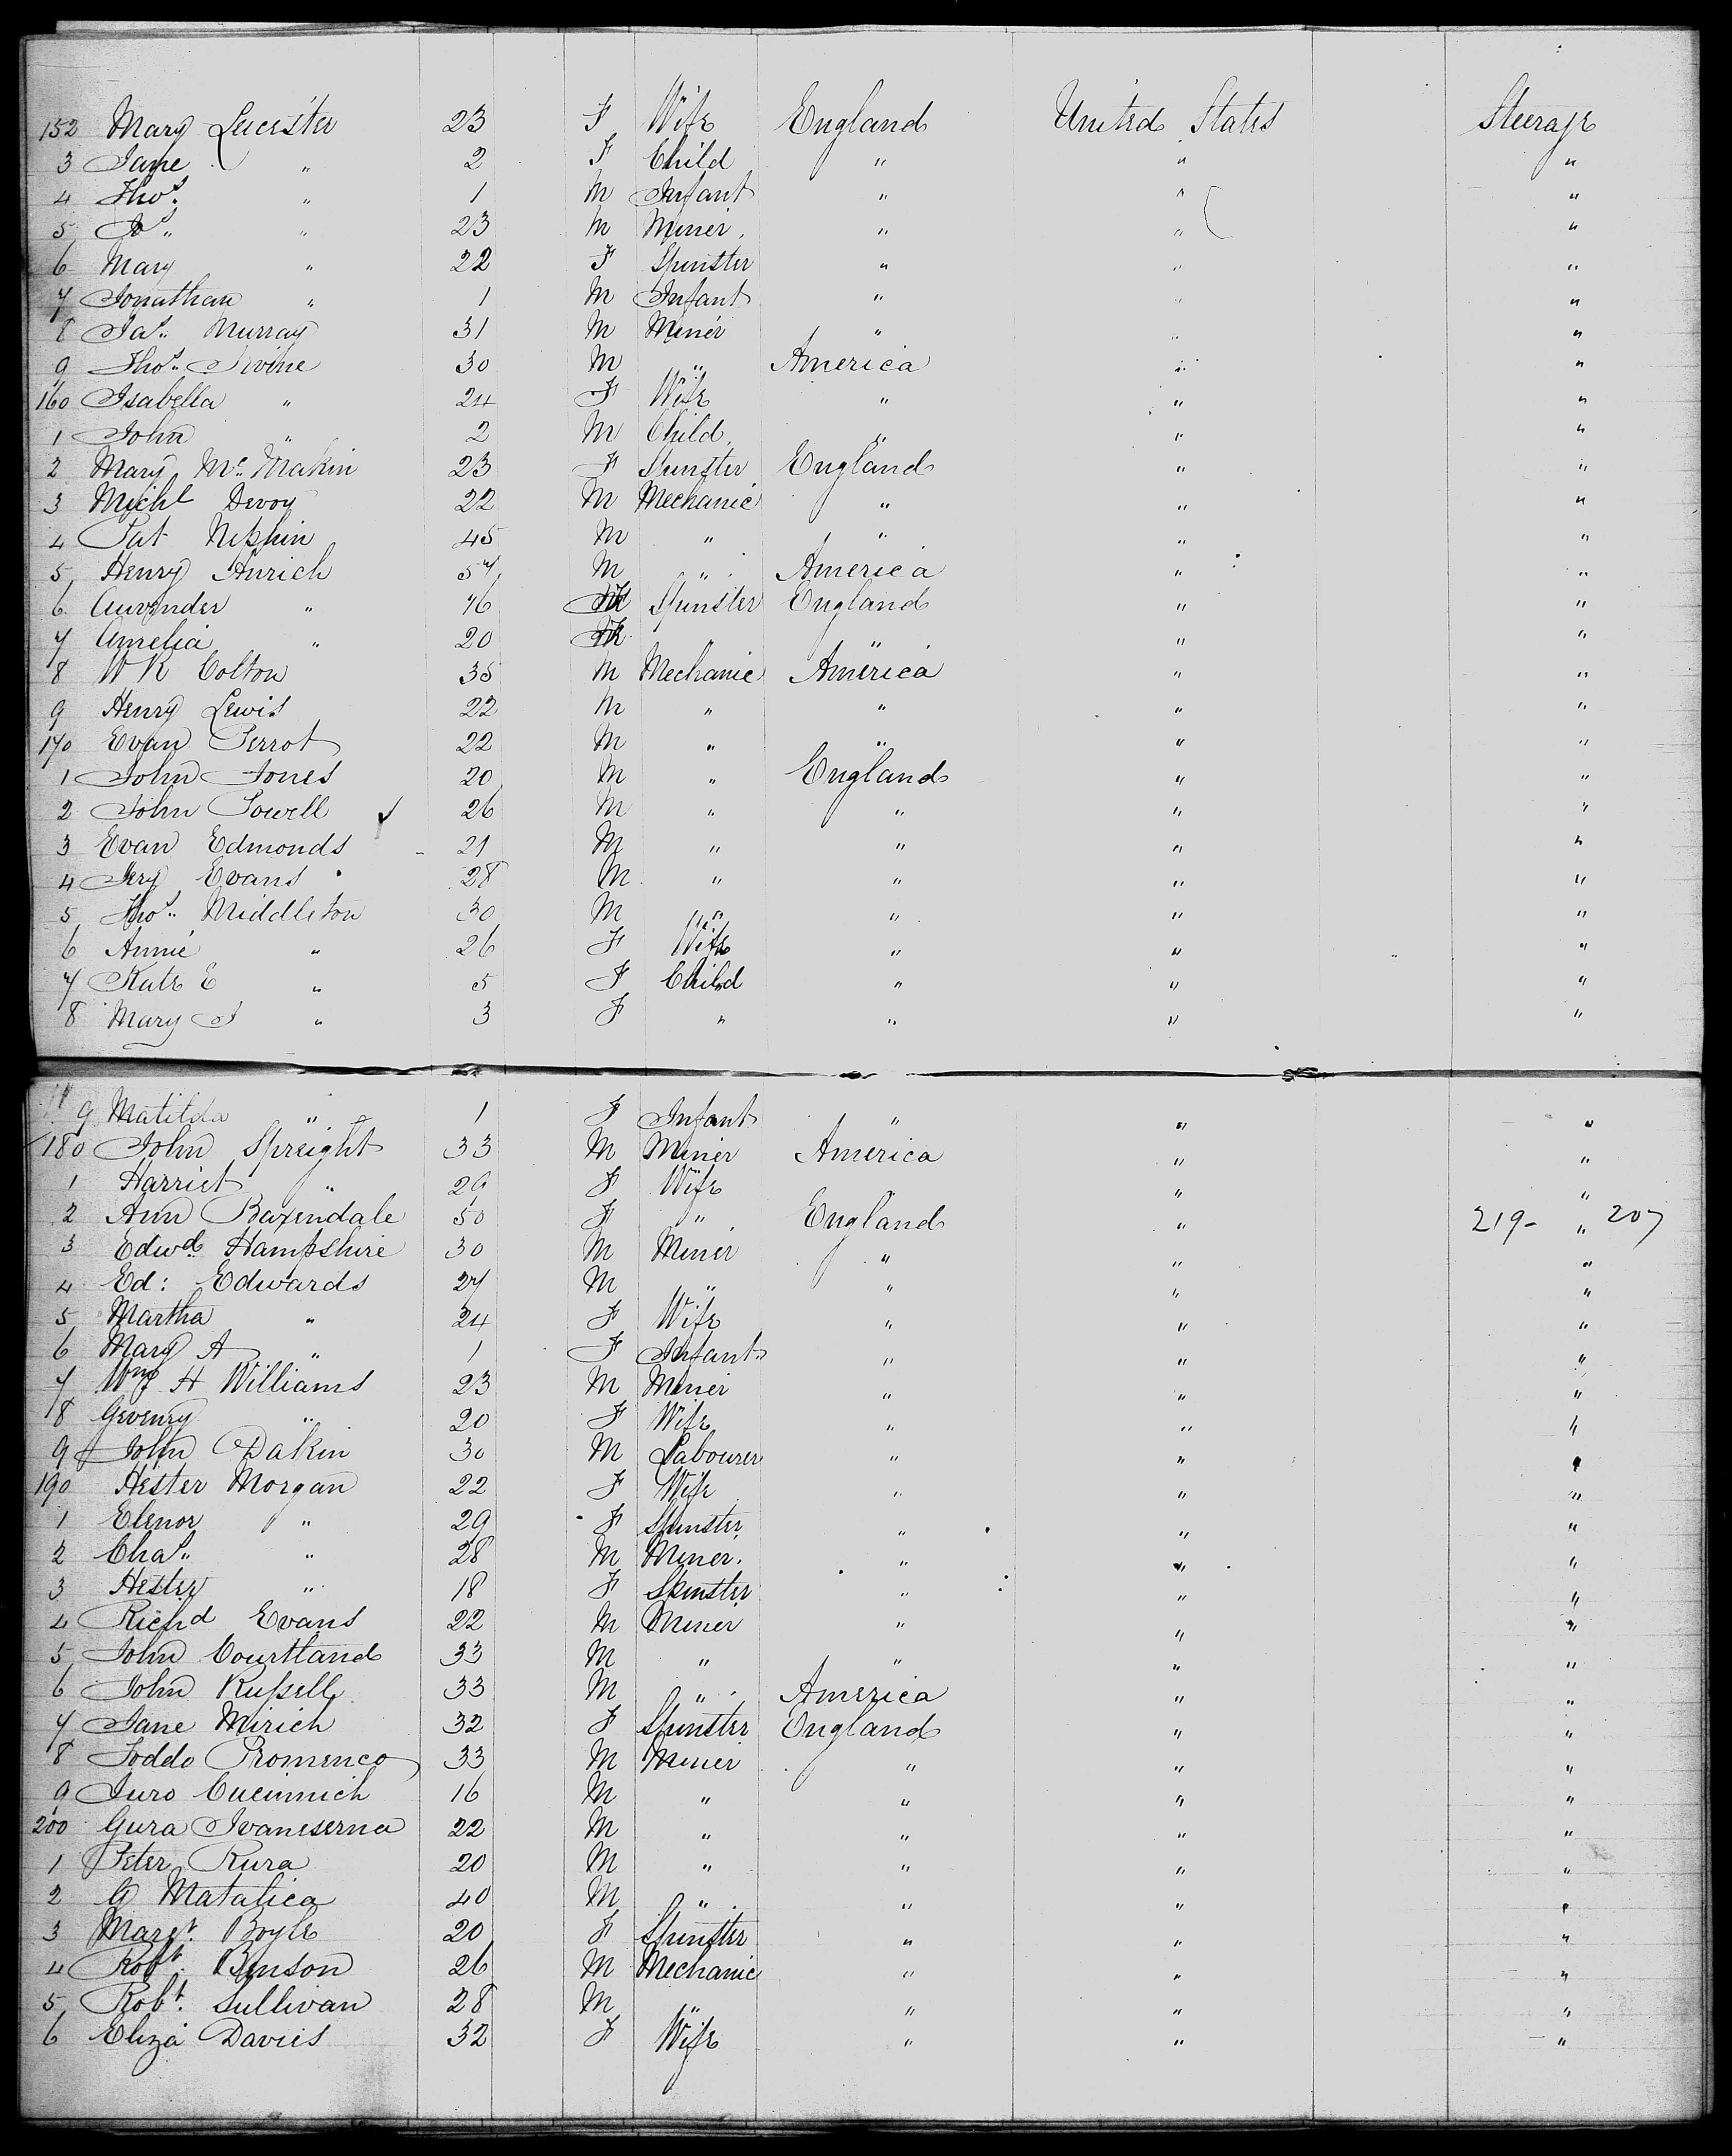 152 Mary Leicester 23 F Wife England United States Steerage
3 Jane " 2 F Child " " "
4 Thos. " 1 M Infant " " "
5 Js. " 23 M Miner " " "
6 Mary " 22 F Spinster " " "
7 Jonathan " 1 M Infant " " "
8 Jas. Murray 31 M Miner " " "
9 Thos. Irvine 30 M " America " "
160 Isabella " 24 F Wife " " "
1 John " 2 M Child " " "
2 Mary McMakin 23 F Spinster England " "
3 Michl Devoy 22 M Mechanic " " "
4 Pat Nipphin 45 M " " " "
5 Henry Anrich 57 M " America " "
6 Auvinder " 46 F Spinster England " "
7 Amelia " 20 F " " " "
8 W R Colton 35 M Mechanic America " "
9 Henry Lewis 22 M " " " "
170 Evan Perrot 22 M " " " "
1 John Jones 20 M " England " "
2 John Powell 26 M " " " "
3 Evan Edmonds 21 M " " " "
4 Jery Evans 28 M " " " "
5 Thos. Middleton 30 M " " " "
6 Annie " 26 F Wife " " "
7 Kate E " 5 F Child " " "
8 Mary J " 3 F " " " "
9 Matilda " 1 F Infant " " "
180 John Spreight 33 M Miner America " "
1 Harriet " 29 F Wife " " "
2 Ann Baxendale 50 F " England " 219- " 207
3 Edwd. Hampshire 30 M Miner " " "
4 Ed: Edwards 27 M " " " "
5 Martha " 24 F Wife " " "
6 Mary A " 1 F Infant " " "
7 Wm H Williams 23 M Miner " " "
8 Gevenry " 20 F Wife " " "
9 John Dakin 30 M Labourer " " "
190 Hester Morgan 22 F Wife " " "
1 Elenor " 29 F Spinster " " "
2 Chas. " 28 M Miner " " "
3 Hester " 18 F Spinster " " "
4 Richd Evans 22 M Miner " " "
5 John Courtland 33 M " " " "
6 John Russell 33 M " America " "
7 Jane Mirich 32 F Spinster England " "
8 Toddo Promenco 33 M Miner " " "
9 Juro Cucinnich 16 M " " " "
200 Gura Ivaneserna 22 M " " " "
1 Peter Kura 20 M " " " "
2 G Matalica 40 M " " " "
3 Margt. Boyle 20 F Spinster " " "
4 Robt. Benson 26 M Mechanic " " "
5 Robt. Sullivan 28 M " " " "
6 Eliza Davies 32 F Wife " " "